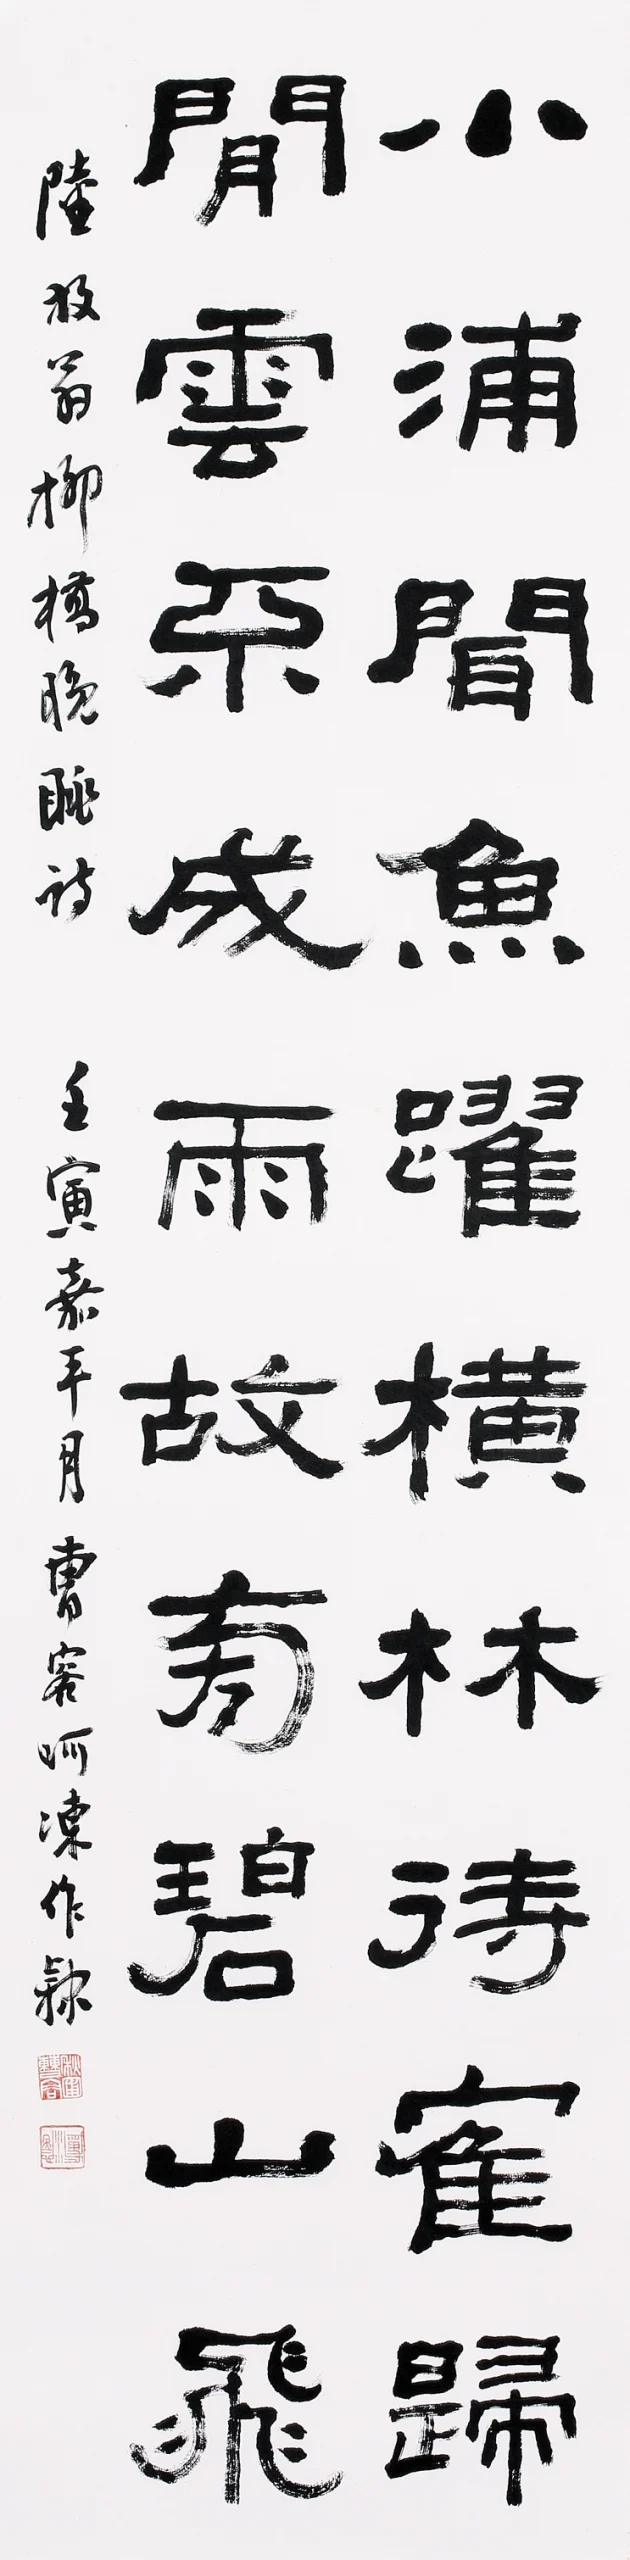 小浦聞魚躍橫林待隺歸
閒雲不成雨故旁碧山飛
陸放翁柳橋晚眺詩 壬寅嘉平月曹容呵凍作隸